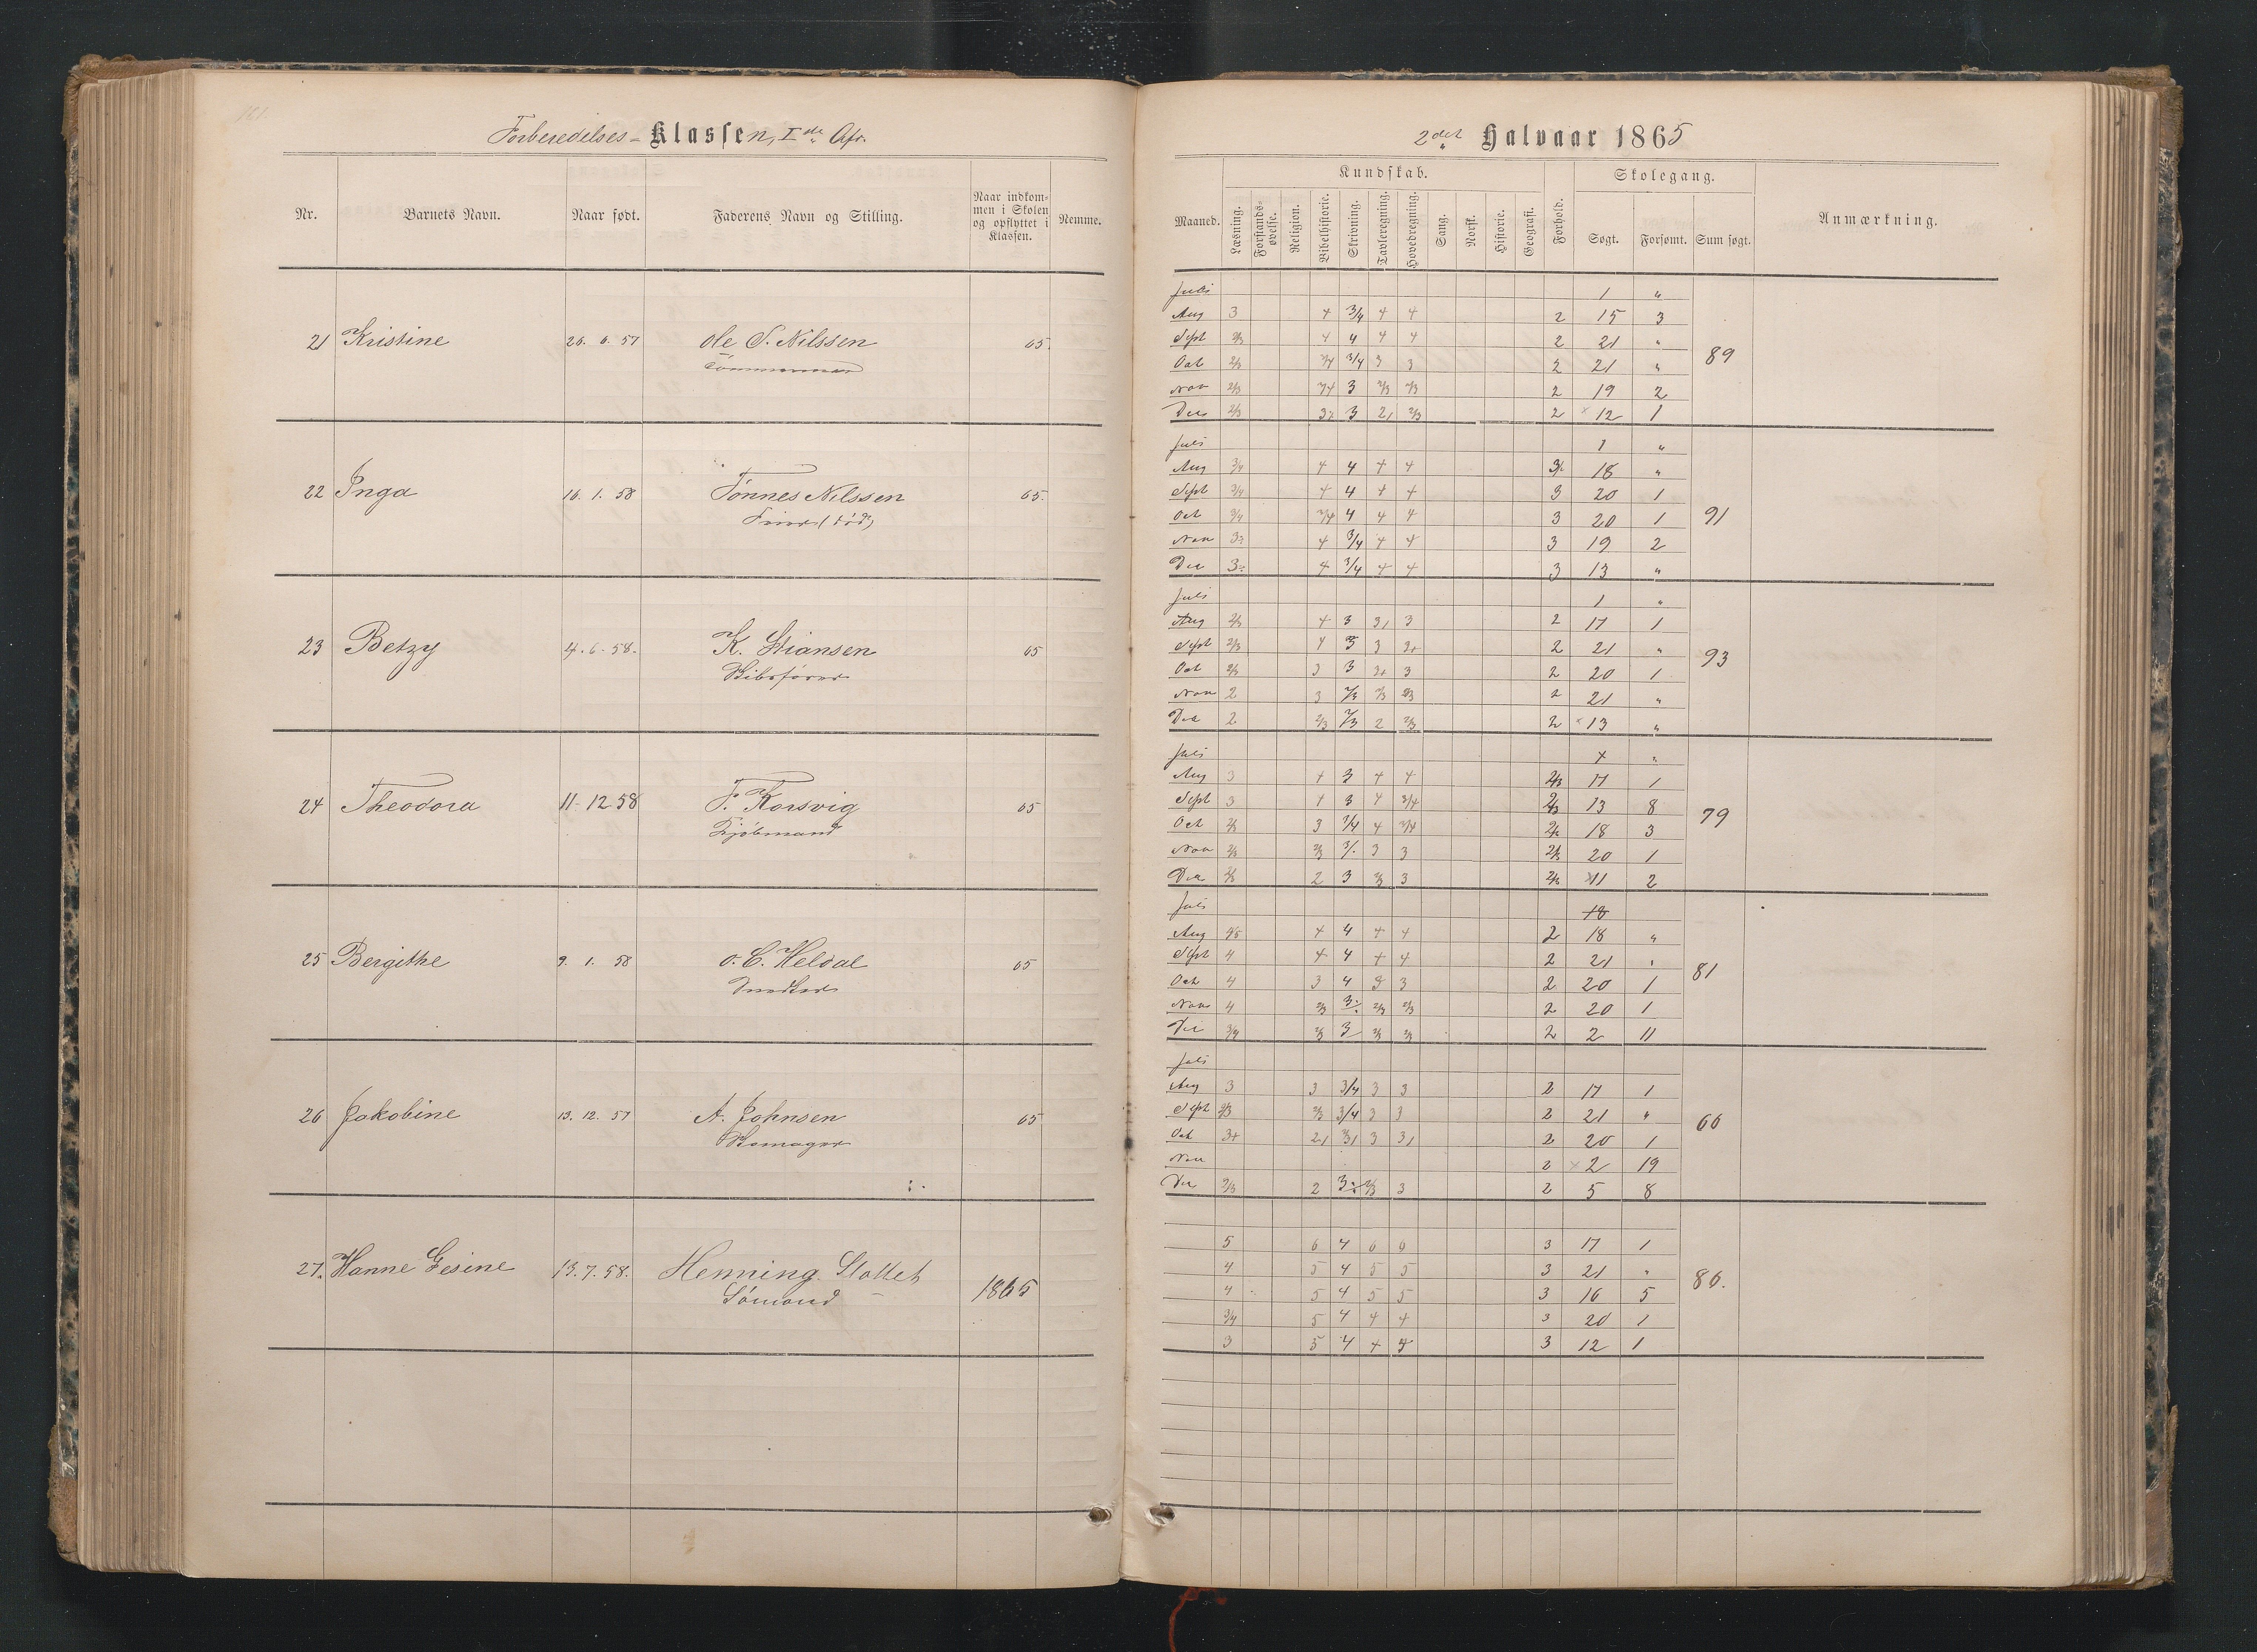 161.
Forberedelses-Klassen, I de Afr.
Nr. Barnets Navn. Naar født. Faderens Navn og Stilling. Naar indkommen i Skolen og opflyttet i Klassen. Nemme.
21 Kristine 26. 6. 57 Ole S. Nilssen 65.
Tømmermand
22 Inga 16. 1. 58 Tønnes Nilssen 65.
(død)
23 Betzy 4. 6. 58. K. Stiansen 65
24 Theodora 11. 12 58 F. Korsvig 65
Kjøbmand
25 Bergithe 9. 1. 58 O. C. Heldal 65
Snedker
26 Jakobine 13. 12. 57 A. Johnsen 65
27. Hanne Gesine 13. 7. 58. Henning Slottet 1865
Sömand
2det Halvaar 1865
Kundskab. Skolegang.
Maaned. Læsning. Forstandsøvelse. Religion. Bibelhistorie. Skrivning. Tavleregning. Hovedregning. Sang. Norsk. Historie. Geografi. Forhold. Søgt. Forsømt. Sum søgt. Anmærkning.
Juli 1 "
Aug 3 4 3/4 4 4 2 15 3
Sept 2/3 4 4 4 4 2 21 "
Oct 2/3 3/4 3/4 3 3 2 21 " 89
Nov 2/3 3/4 3 2/3 2/3 2 19 2
Dec 2/3 3 2/3 2 12 1
Juli 1 "
Aug 3/4 4 4 4 4 18 "
Sept 3/4 4 4 4 4 3 20 1
Oct 3/4 3/4 4 4 4 3 20 1 91
Nov 4 3/4 4 4 3 19 2
Dec 4 3/4 4 4 3 13 "
Juli 1 "
Aug 2/3 4 3 3 2 17 1
Sept 2/3 4 3 3 2 21 "
Oct 2/3 3 3 3+ 3 2 20 1 93
Nov 2 3 2/3 2/3 2/3 2 21 "
Dec 2 2/3 2/3 2 2/3 2 13 "
Juli "
Aug 3 4 3 4 4 2/3 17 1
Sept 3 4 3 4 3/4 2/3 13 8
Oct 2/3 3 3/4 4 3/4 18 3 79
Nov 2/3 2/3 3 3 2/3 20 1
Dec 2/3 2 3 2/3 3 2/3 11 2
Juli 18
Aug 4/5 4 4 4 4 2 18 "
Sept 4 4 4 4 4 2 21 "
Oct 4 3 4 3 3 2 20 1 81
Nov 4 2/3 2/3 2/3 2 20 1
Dec 3/4 2/3 3 2/3 2/3 2 2 11
Juli
Aug 3 3 3/4 3 3 2 17 1
Sept 2/3 2/3 3/4 3 3 2 21 "
Oct 3+ 3 2 20 1 66
Nov 2 2 19
Dec 2/3 2 2/3 3 2 5 8
5 6 4 6 6 3 17 1
4 5 4 5 5 3 21 "
4 5 4 5 5 3 16 5 86.
3/4 5 4 4 4 3 20 1
3 5 4 4 3 12 1